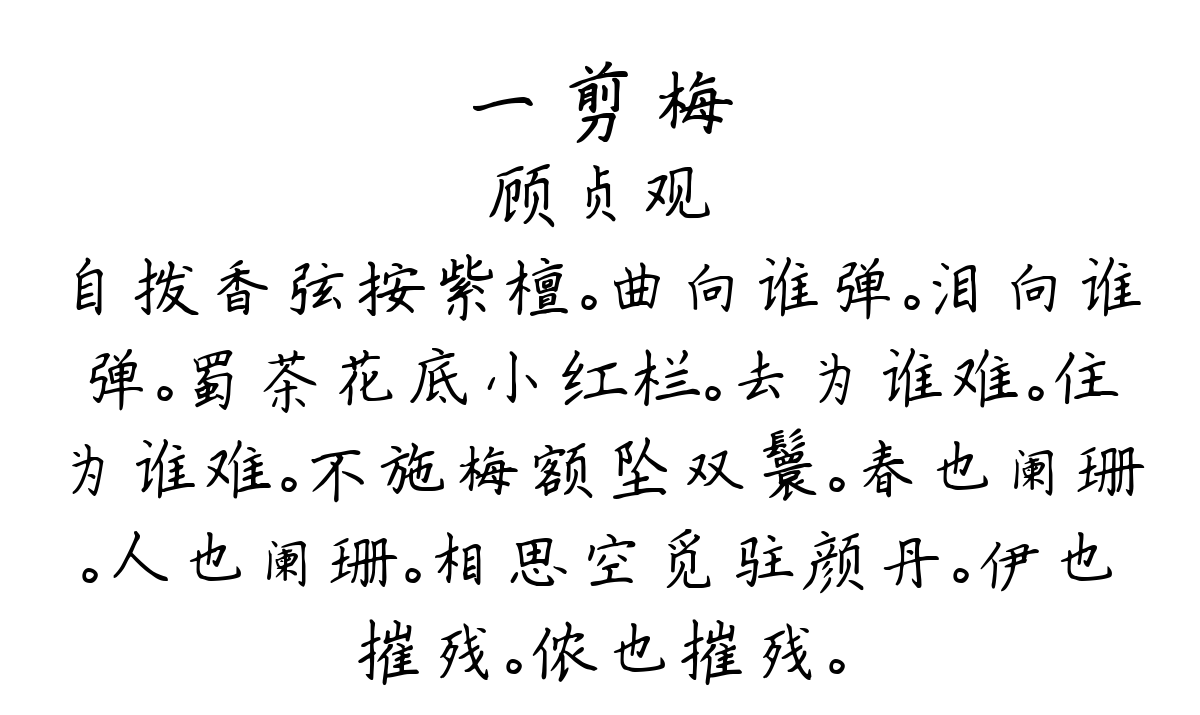 一剪梅
顾贞观
自拨香弦按紫檀。曲向谁弹。泪向谁
弹。蜀茶花底小红栏。去为谁难。住
为谁难。不施梅额坠双鬟。春也阑珊
。人也阑珊。相思空觅驻颜丹。伊也
摧残。侬也摧残。